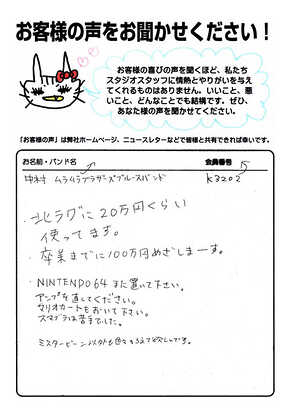 お客様の声をお聞かせください！
お客様の喜びの声を聞くほど、私たち
スタジオスタッフに情熱とやりがいを与え
てくれるものはありません。いいこと、悪
いこと、どんなことでも結構です。ぜひ、
あなた様の声を聞かせてください。
「お客様の声」は弊社ホームページ、ニュースレターなどで皆様と共有できれば幸いです。
お名前・バンド名 会員番号
中村 ムラムラブラザーズブルースバンド K3202
・北ラグに20万円くらい
使ってます。
・卒業までに100万円めざしまーす。
・NINTENDO64また置いて下さい。
アンプを直してください。
マリオカートもおいて下さい。
スマブラは苦手でした。
ミスタービーン以外も